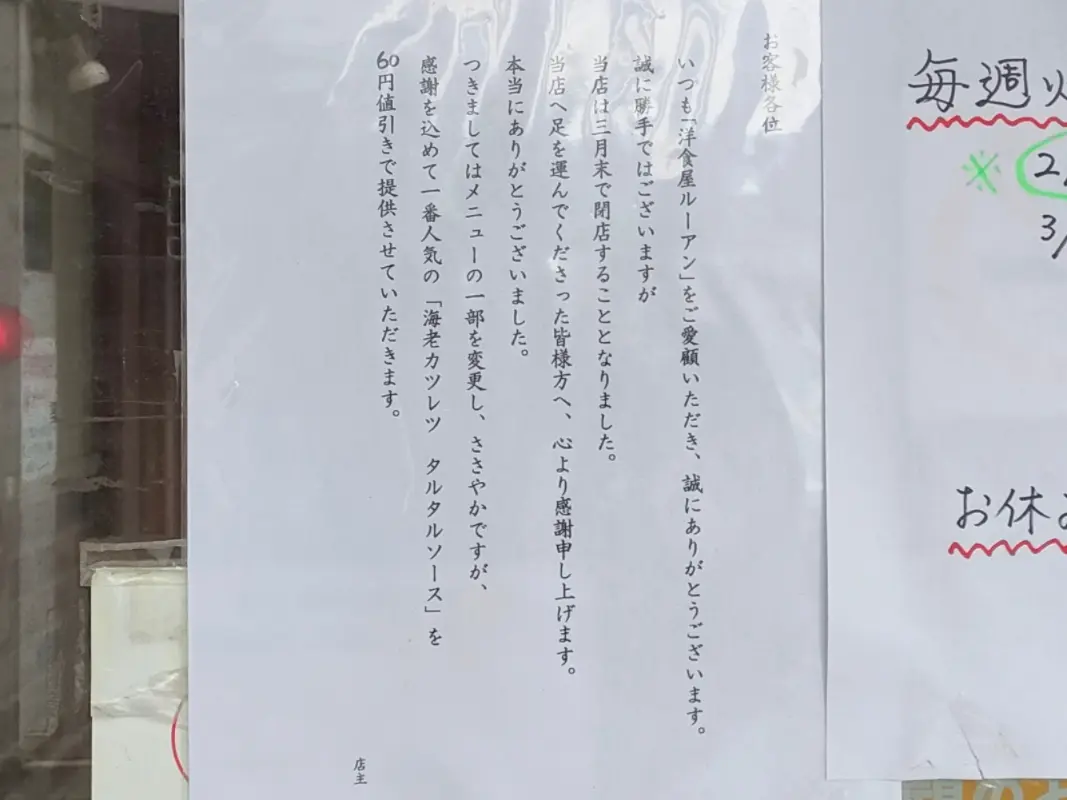 お客様各位
いつも「洋食屋ルーアン」をご愛顧いただき、誠にありがとうございます。
誠に勝手ではございますが
当店は三月末で閉店することとなりました。
当店へ足を運んでくださった皆様方へ、心より感謝申し上げます。
本当にありがとうございました。
つきましてはメニューの一部を変更し、ささやかですが、
感謝を込めて一番人気の「海老カツレツ　タルタルソース」を
60円値引きで提供させていただきます。
店主
毎週火
※ 2/
3/
お休み